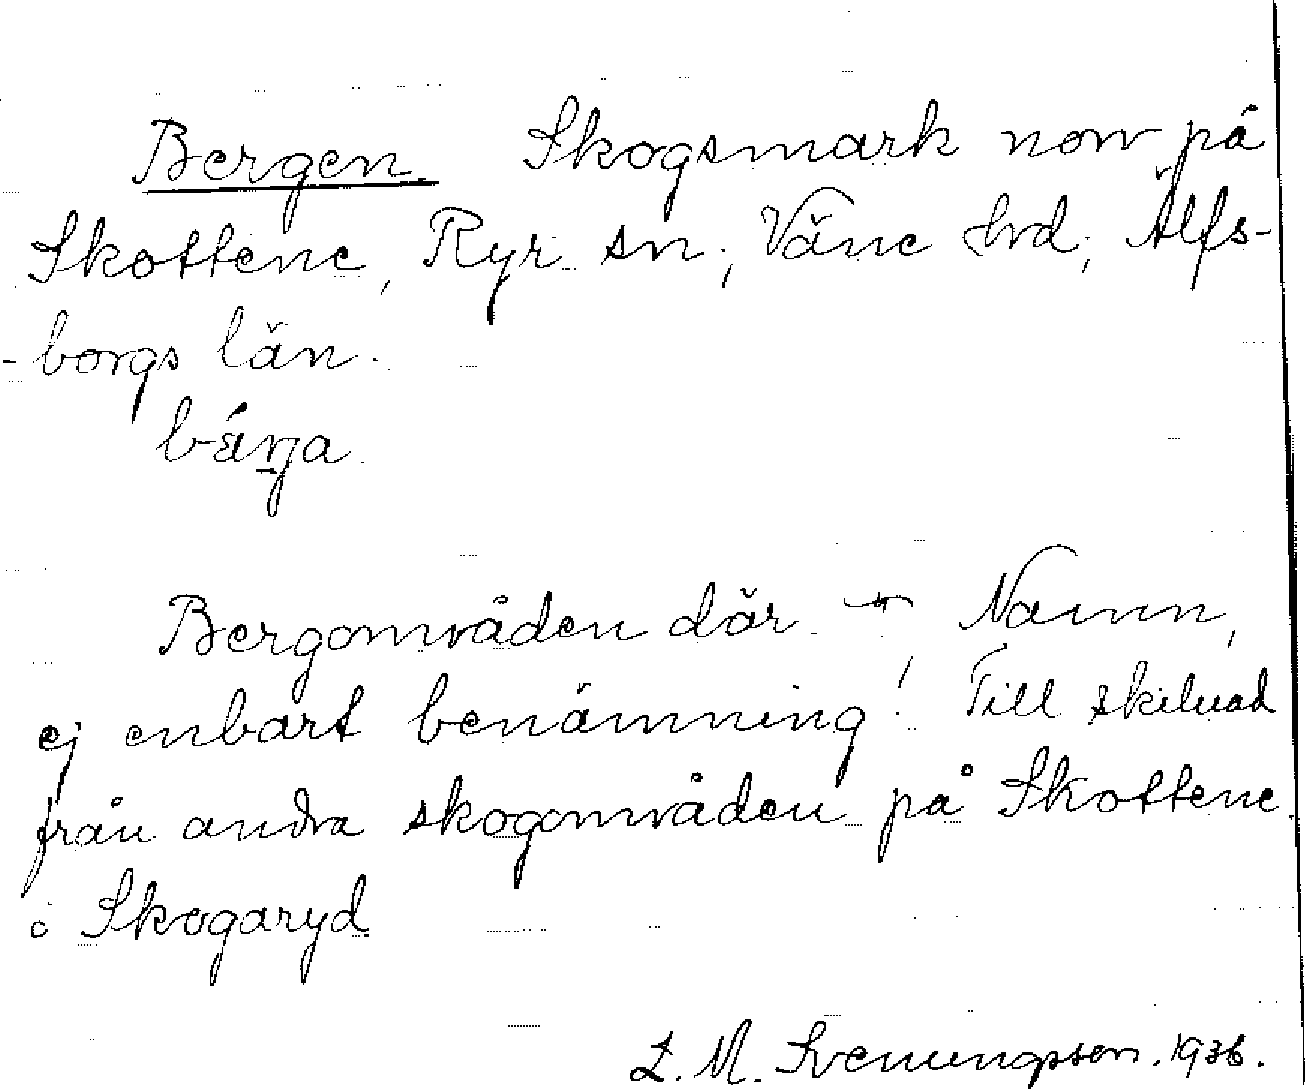 Bergen. Skogsmark norr på
Skottene, Ryr sn, Väne hrd, Älfs-
-borgs län.
bárja.
Bergområden där. Namn,
ej enbart benämning! Till skilnad
från andra skogområden på Skottene
o Skogaryd
L. M. Svenungsson. 1936.